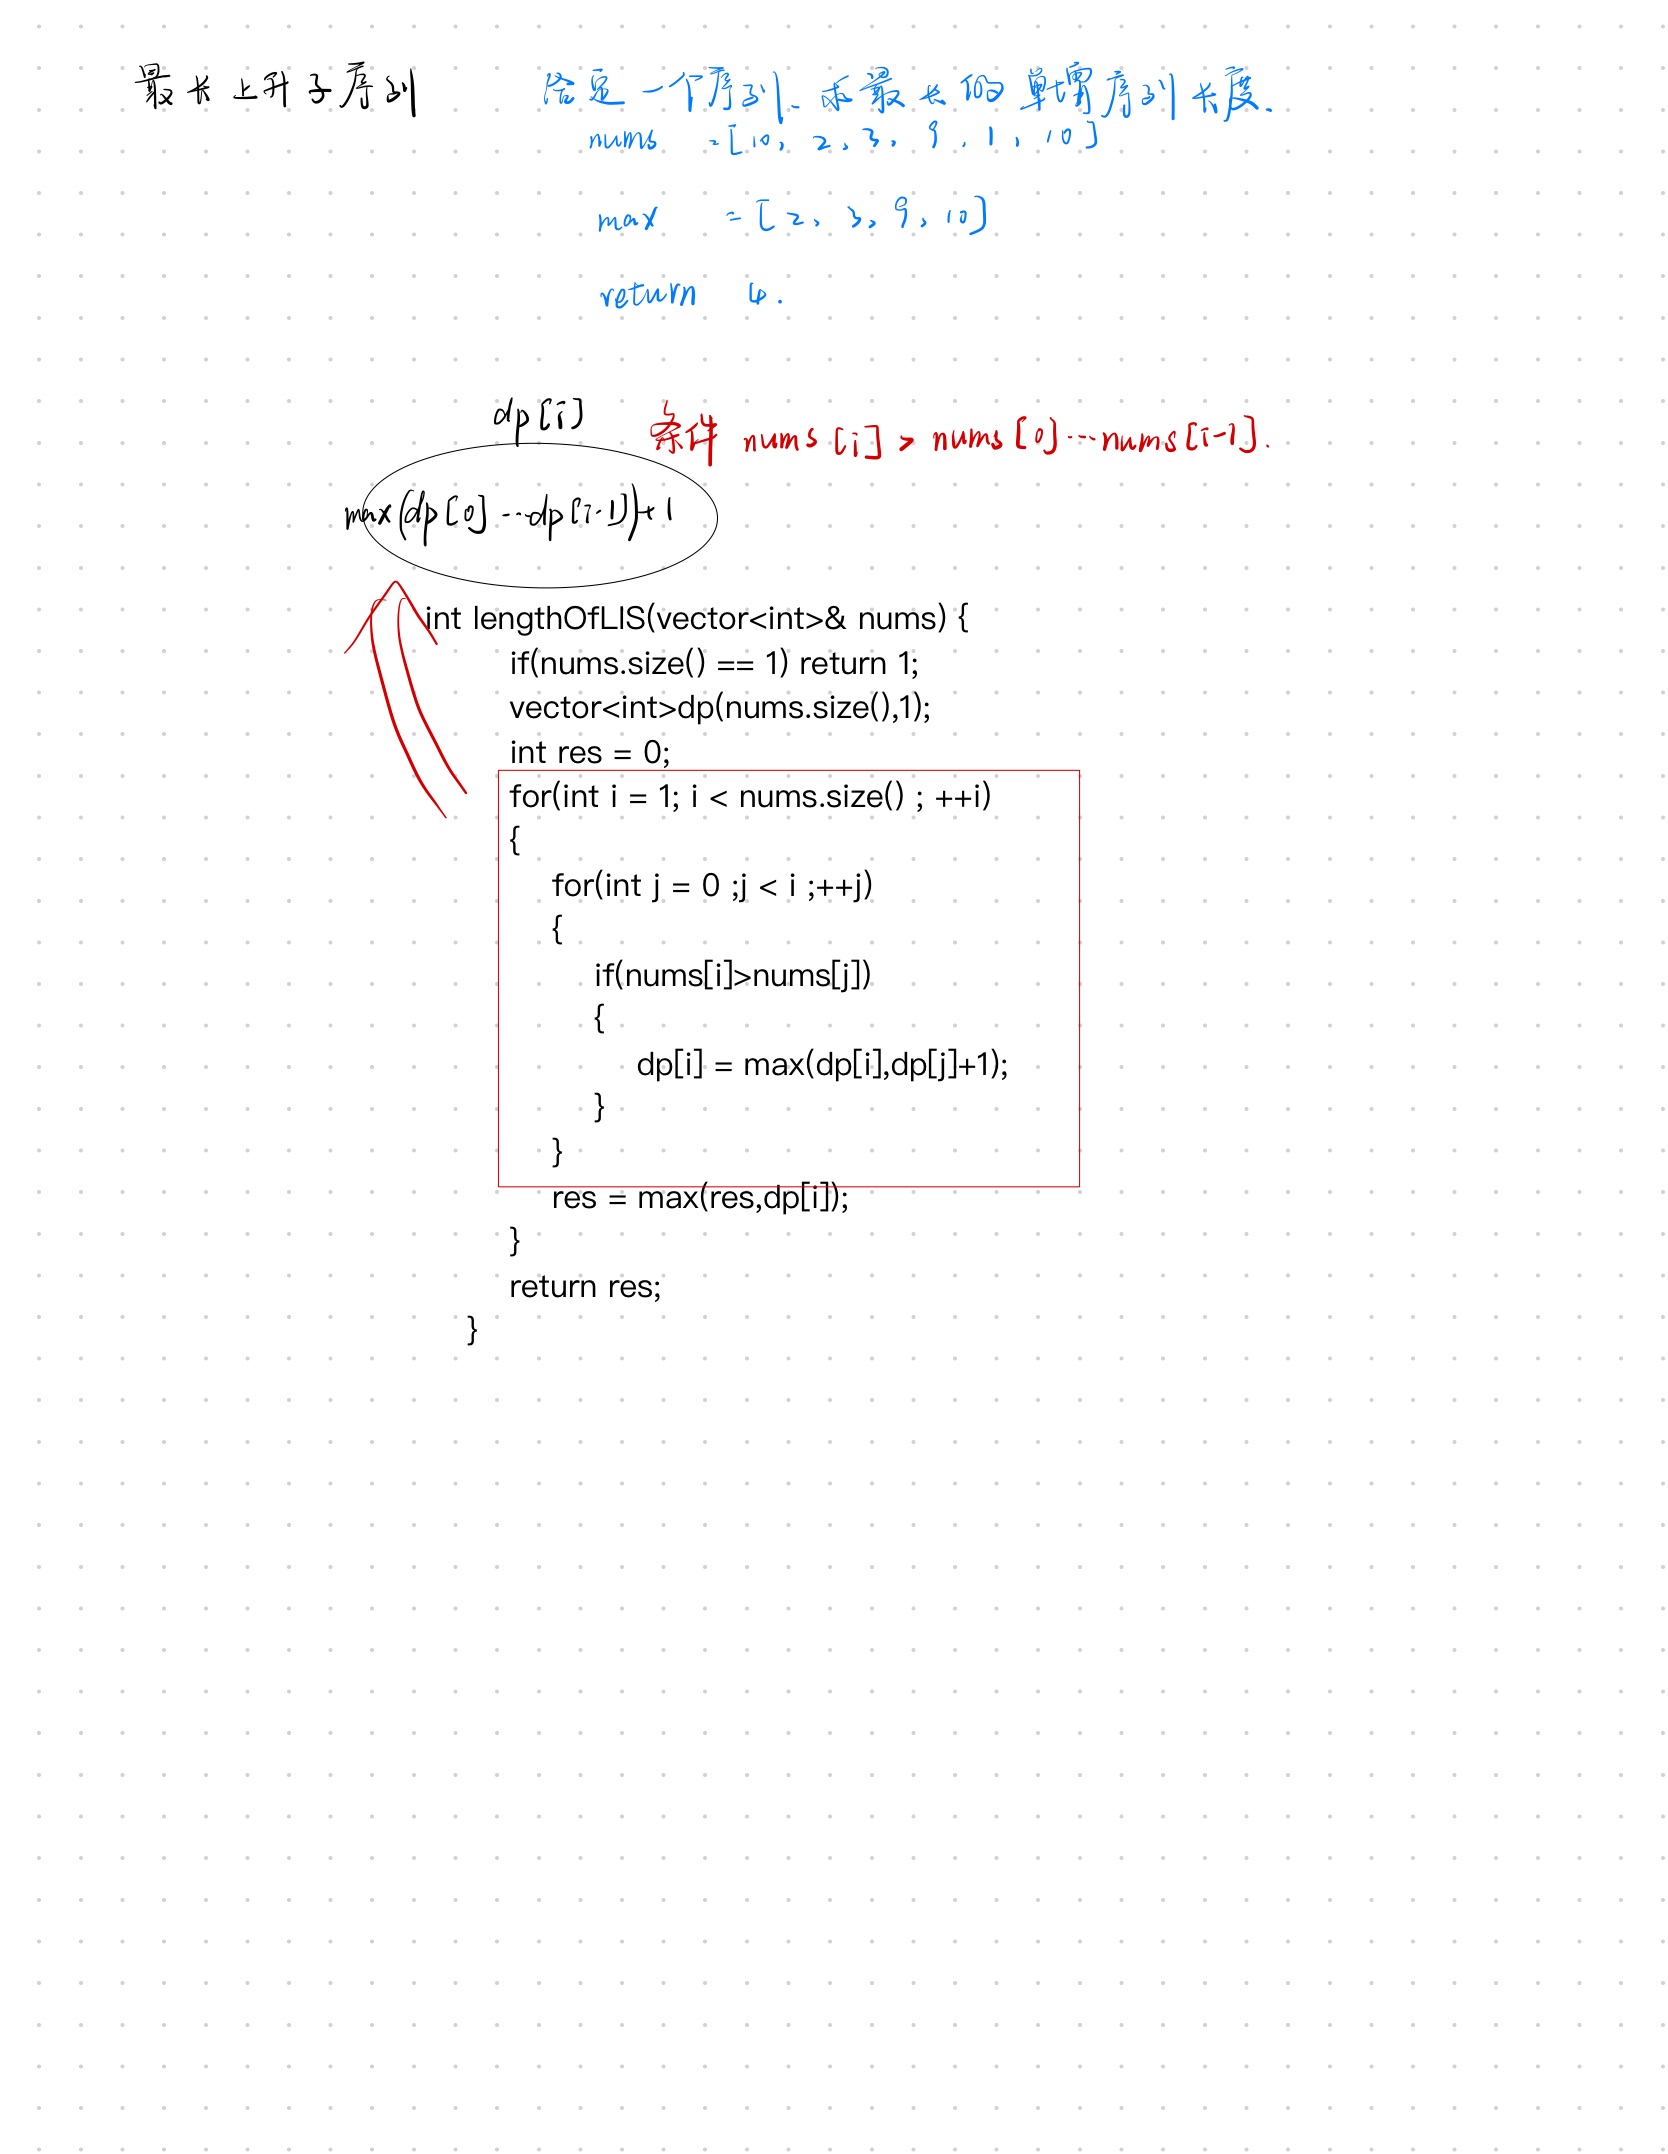 最长上升子序列 给定一个序列、求最长的单增序列长度.
nums =[10, 2, 3, 9, 1, 10]
max =[2, 3, 9, 10]
return 4.
dp[i] 条件 nums[i] > nums[0]...nums[i-1].
max(dp[0]...dp[i-1])+1
int lengthOfLIS(vector<int>& nums) {
if(nums.size() == 1) return 1;
vector<int>dp(nums.size(),1);
int res = 0;
for(int i = 1; i < nums.size() ; ++i)
{
for(int j = 0 ;j < i ;++j)
{
if(nums[i]>nums[j])
{
dp[i] = max(dp[i],dp[j]+1);
}
}
res = max(res,dp[i]);
}
return res;
}